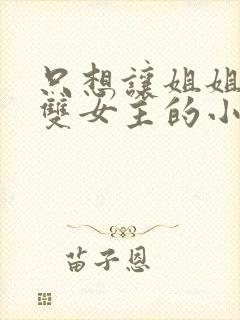 只想讓姐姐
雙女主的小
苗子恩